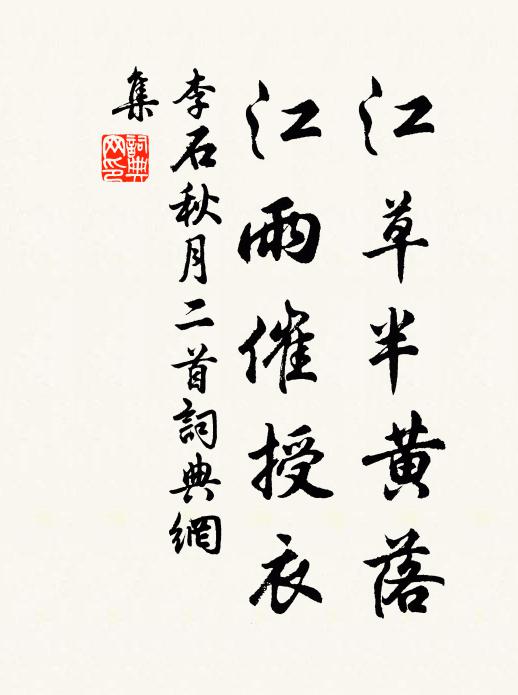 江草半黃落
江雨催授衣
李石秋月二首詞典網
集
詞典
网印